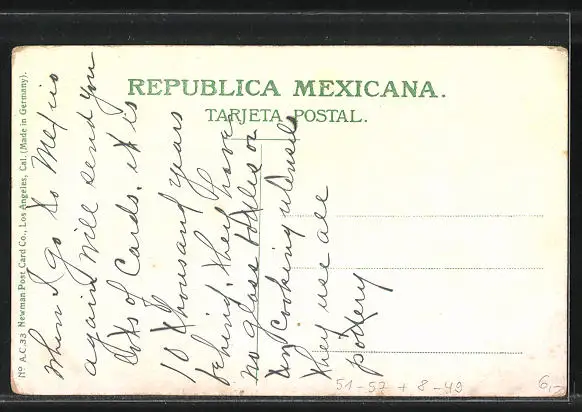 REPUBLICA MEXICANA.
TARJETA POSTAL.
Nº A.C.33 Newman Post Card Co., Los Angeles, Cal. (Made in Germany).
When I go to Mexico
again will send you
lots of Cards. it is
10 thousand years
behind. they have
no glass tables or
tin cooking utensils
they use all
pottery
51-57 + 8-49
6,-